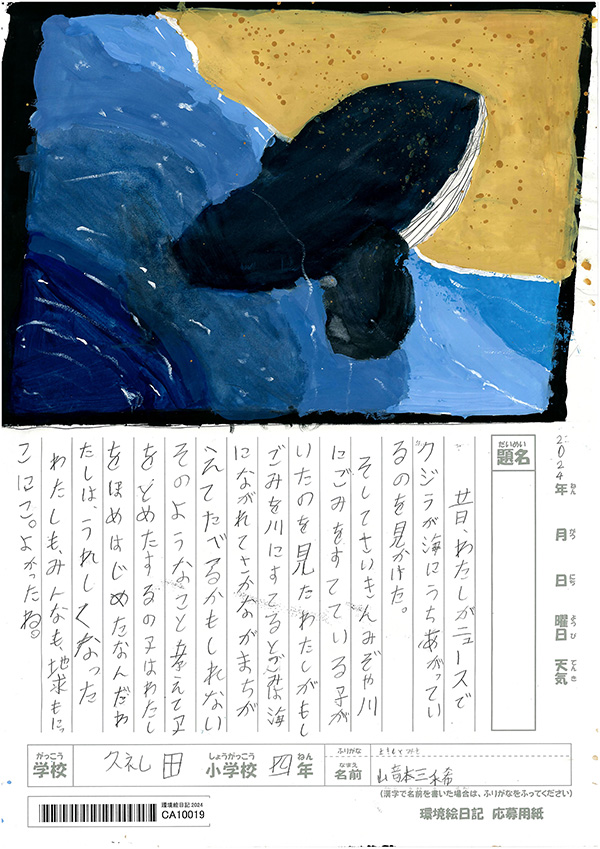 2024年 月 日 曜日 天気
ねん がつ にち ようび てんき
だいめい
題名
昔日、わたしがニュースで
クジラが海にうちあがってい
るのを見かけた。
そしてさいきんみぞや川
にごみをすてている子が
いたのを見たわたしがもし
ごみを川にすてるとごみは海
にながれてさかながまちが
えてたべるかもしれない
そのようなこと考えて子
をどめたするの子はわたし
をほめはじめたなんだわ
たしは、うれしくなった
わたしも、みんなも、地求もにっ
こにこ。よかったね。
がっこう しょうがっこう ねん
学校 久礼田 小学校 四年
ふりがな
なまえ
名前 三希
(漢字で名前を書いた場合は、ふりがなをふってください)
環境絵日記 2024
CA10019
環境絵日記 応募用紙